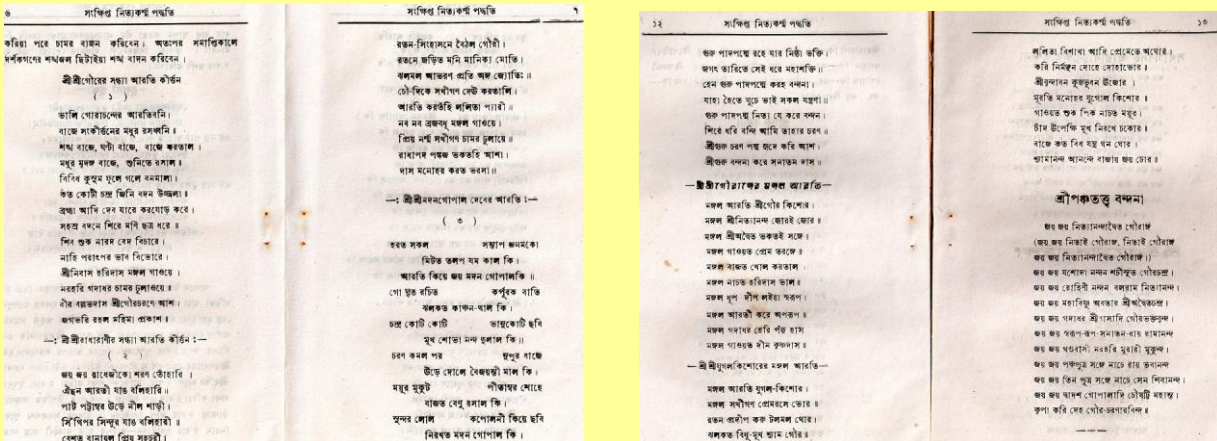 ৬
সংক্ষিপ্ত নিত্যকর্ম্ম পদ্ধতি
করিয়া পরে চামর ব্যজন করিবেন। অতঃপর সমাপ্তিকালে
দর্শকগণের শঙ্খজল ছিটাইয়া শঙ্খ বাদন করিবেন।
শ্রীশ্রীগৌরের সন্ধ্যা আরতি কীর্ত্তন
( ১ )
ভালি গোরাচান্দের আরতিবনি।
বাজে সংকীর্ত্তনের মধুর রসধ্বনি॥
শঙ্খ বাজে, ঘন্টা বাজে, বাজে করতাল।
মধুর মৃদঙ্গ বাজে, শুনিতে রসাল॥
বিবিধ কুসুম ফুলে গলে বনমালা।
কত কোটী চন্দ্র জিনি বদন উজ্জ্বলা॥
ব্রহ্মা আদি দেব যারে করযোড় করে।
সহস্র বদনে শিরে মণি ছত্র ধরে॥
শিব শুক নারদ বেদ বিচারে।
নাহি পরাৎপর ভাব বিভোরে।
শ্রীনিবাস হরিদাস মঙ্গল গাওয়ে।
নরহরি গদাধর চামর ঢুলাওয়ে॥
বীর বল্লভদাস শ্রীগৌরচরণে আশ।
জগভরি রহল মহিমা প্রকাশ॥
—: শ্রীশ্রীরাধারাণীর সন্ধ্যা আরতি কীর্ত্তন :—
( ২ )
জয় জয় রাধেজীকো শরণ তোঁহারি।
ঐছন আরতী যাঙ বলিহারি॥
পাট পট্টাম্বর উড়ে নীল শাড়ী।
সিঁথিপর সিন্দুর যাঙ বলিহারী॥
বেশত বানায়ল প্রিয় সহচরী।
সংক্ষিপ্ত নিত্যকর্ম্ম পদ্ধতি
৭
রতন-সিংহাসনে বৈঠল গৌরী।
রতনে জড়িত মনি মানিক্য মোতি।
ঝলমল আভরণ প্রতি অঙ্গ জ্যোতিঃ॥
চৌ-দিকে সখীগণ দেউ করতালি।
আরতি করতঁহি ললিতা প্যারী॥
নব নব ব্রজবধূ মঙ্গল গাওয়ে।
প্রিয় নর্ম্ম সখীগণ চামর ঢুলায়ে॥
রাধাপদ পঙ্কজ ভকতহি আশা।
দাস মনোহর করত ভরসা॥
—: শ্রীশ্রীমদনগোপাল দেবের আরতি :—
( ৩ )
হরত সকল সন্তাপ জনমকো
মিটত তলপ যম কাল কি।
আরতি কিয়ে জয় মদন গোপালকি॥
গো ঘৃত রচিত কর্পূরক বাতি
ঝলকত কাঞ্চন-থাল কি।
চন্দ্র কোটি কোটি ভানুকোটি ছবি
মুখ শোভা নন্দ দুলাল কি॥
চরণ কমল পর নূপুর বাজে
উড়ে দোলে বৈজয়ন্তী মাল কি।
ময়ূর মুকুট পীতাম্বর শোহে
বাজত বেণু রসাল কি।
সুন্দর লোল কপোলনী কিয়ে ছবি
নিরখত মদন গোপাল কি।
১২
সংক্ষিপ্ত নিত্যকর্ম্ম পদ্ধতি
গুরু পাদপদ্মে রহে যার নিষ্ঠা ভক্তি।
জগৎ তারিতে সেই ধরে মহাশক্তি॥
হেন গুরু পাদপদ্মে করহ বন্দনা।
যাহা হৈতে ঘুচে ভাই সকল যন্ত্রণা॥
গুরু পাদপদ্ম নিত্য যে করে বন্দন।
শিরে ধরি বন্দি আমি তাহার চরণ॥
শ্রীগুরু চরণ পদ্ম হৃদে করি আশ।
শ্রীগুরু বন্দনা করে সনাতন দাস॥
—শ্রীশ্রীগৌরাঙ্গের মঙ্গল আরতি—
মঙ্গল আরতি শ্রীগৌর কিশোর।
মঙ্গল শ্রীনিত্যানন্দ জোরহি জোর॥
মঙ্গল শ্রীঅদ্বৈত ভকতই সঙ্গে।
মঙ্গল গাওত প্রেম তরঙ্গে॥
মঙ্গল বাজত খোল করতাল
মঙ্গল নাচত হরিদাস ভাল॥
মঙ্গল ধূপ দীপ লইয়া স্বরূপ।
মঙ্গল আরতী করে অপরূপ॥
মঙ্গল গদাধর হেরি পঁহু হাস
মঙ্গল গাওয়ত দীন কৃষ্ণদাস॥
—শ্রীশ্রীযুগলকিশোরের মঙ্গল আরতি—
মঙ্গল আরতি যুগল-কিশোর।
মঙ্গল সখীগণ প্রেমরসে ভোর॥
রতন প্রদীপ করু টলমল থোর।
ঝলকত বিধু-মুখ শ্যাম গৌর॥
সংক্ষিপ্ত নিত্যকর্ম্ম পদ্ধতি
১৩
ললিতা বিশাখা আদি প্রেমেতে আগোর।
করি নির্মঞ্ছন দোহে দোহাভোর॥
শ্রীবৃন্দাবন কুঞ্জভুবন উজোর।
মূরতি মনোহর যুগোল কিশোর॥
গাওয়ত শুক পিক নাচত ময়ূর।
চাঁদ উপেক্ষি মুখ নিরখে চকোর॥
বাজে কত বিধ যন্ত্র ঘন ঘোর।
শ্যামানন্দ আনন্দে বাজায় জয় ঢোর॥
শ্রীপঞ্চতত্ত্ব বন্দনা
জয় জয় নিত্যানন্দাদ্বৈত গৌরাঙ্গ
(জয় জয় নিতাই গৌরাঙ্গ, নিতাই গৌরাঙ্গ
জয় জয় নিত্যানন্দাদ্বৈত গৌরাঙ্গ।)
জয় জয় যশোদা নন্দন শচীসুত গৌরচন্দ্র।
জয় জয় রোহিণী নন্দন বলরাম নিত্যানন্দ।
জয় জয় মহাবিষ্ণু অবতার শ্রীঅদ্বৈতচন্দ্র।
জয় জয় গদাধর শ্রীবাসাদি গৌরভক্তবৃন্দ।
জয় জয় স্বরূপ-রূপ-সনাতন-রায় রামানন্দ
জয় জয় খণ্ডবাসী নরহরি মুরারী মুকুন্দ।
জয় জয় পঞ্চপুত্র সঙ্গে নাচে রায় ভবানন্দ
জয় জয় তিন পুত্র সঙ্গে নাচে সেন শিবানন্দ।
জয় জয় দ্বাদশ গোপালাদি চৌষট্টি মহান্ত।
কৃপা করি দেহ গৌর-চরণারবিন্দ॥